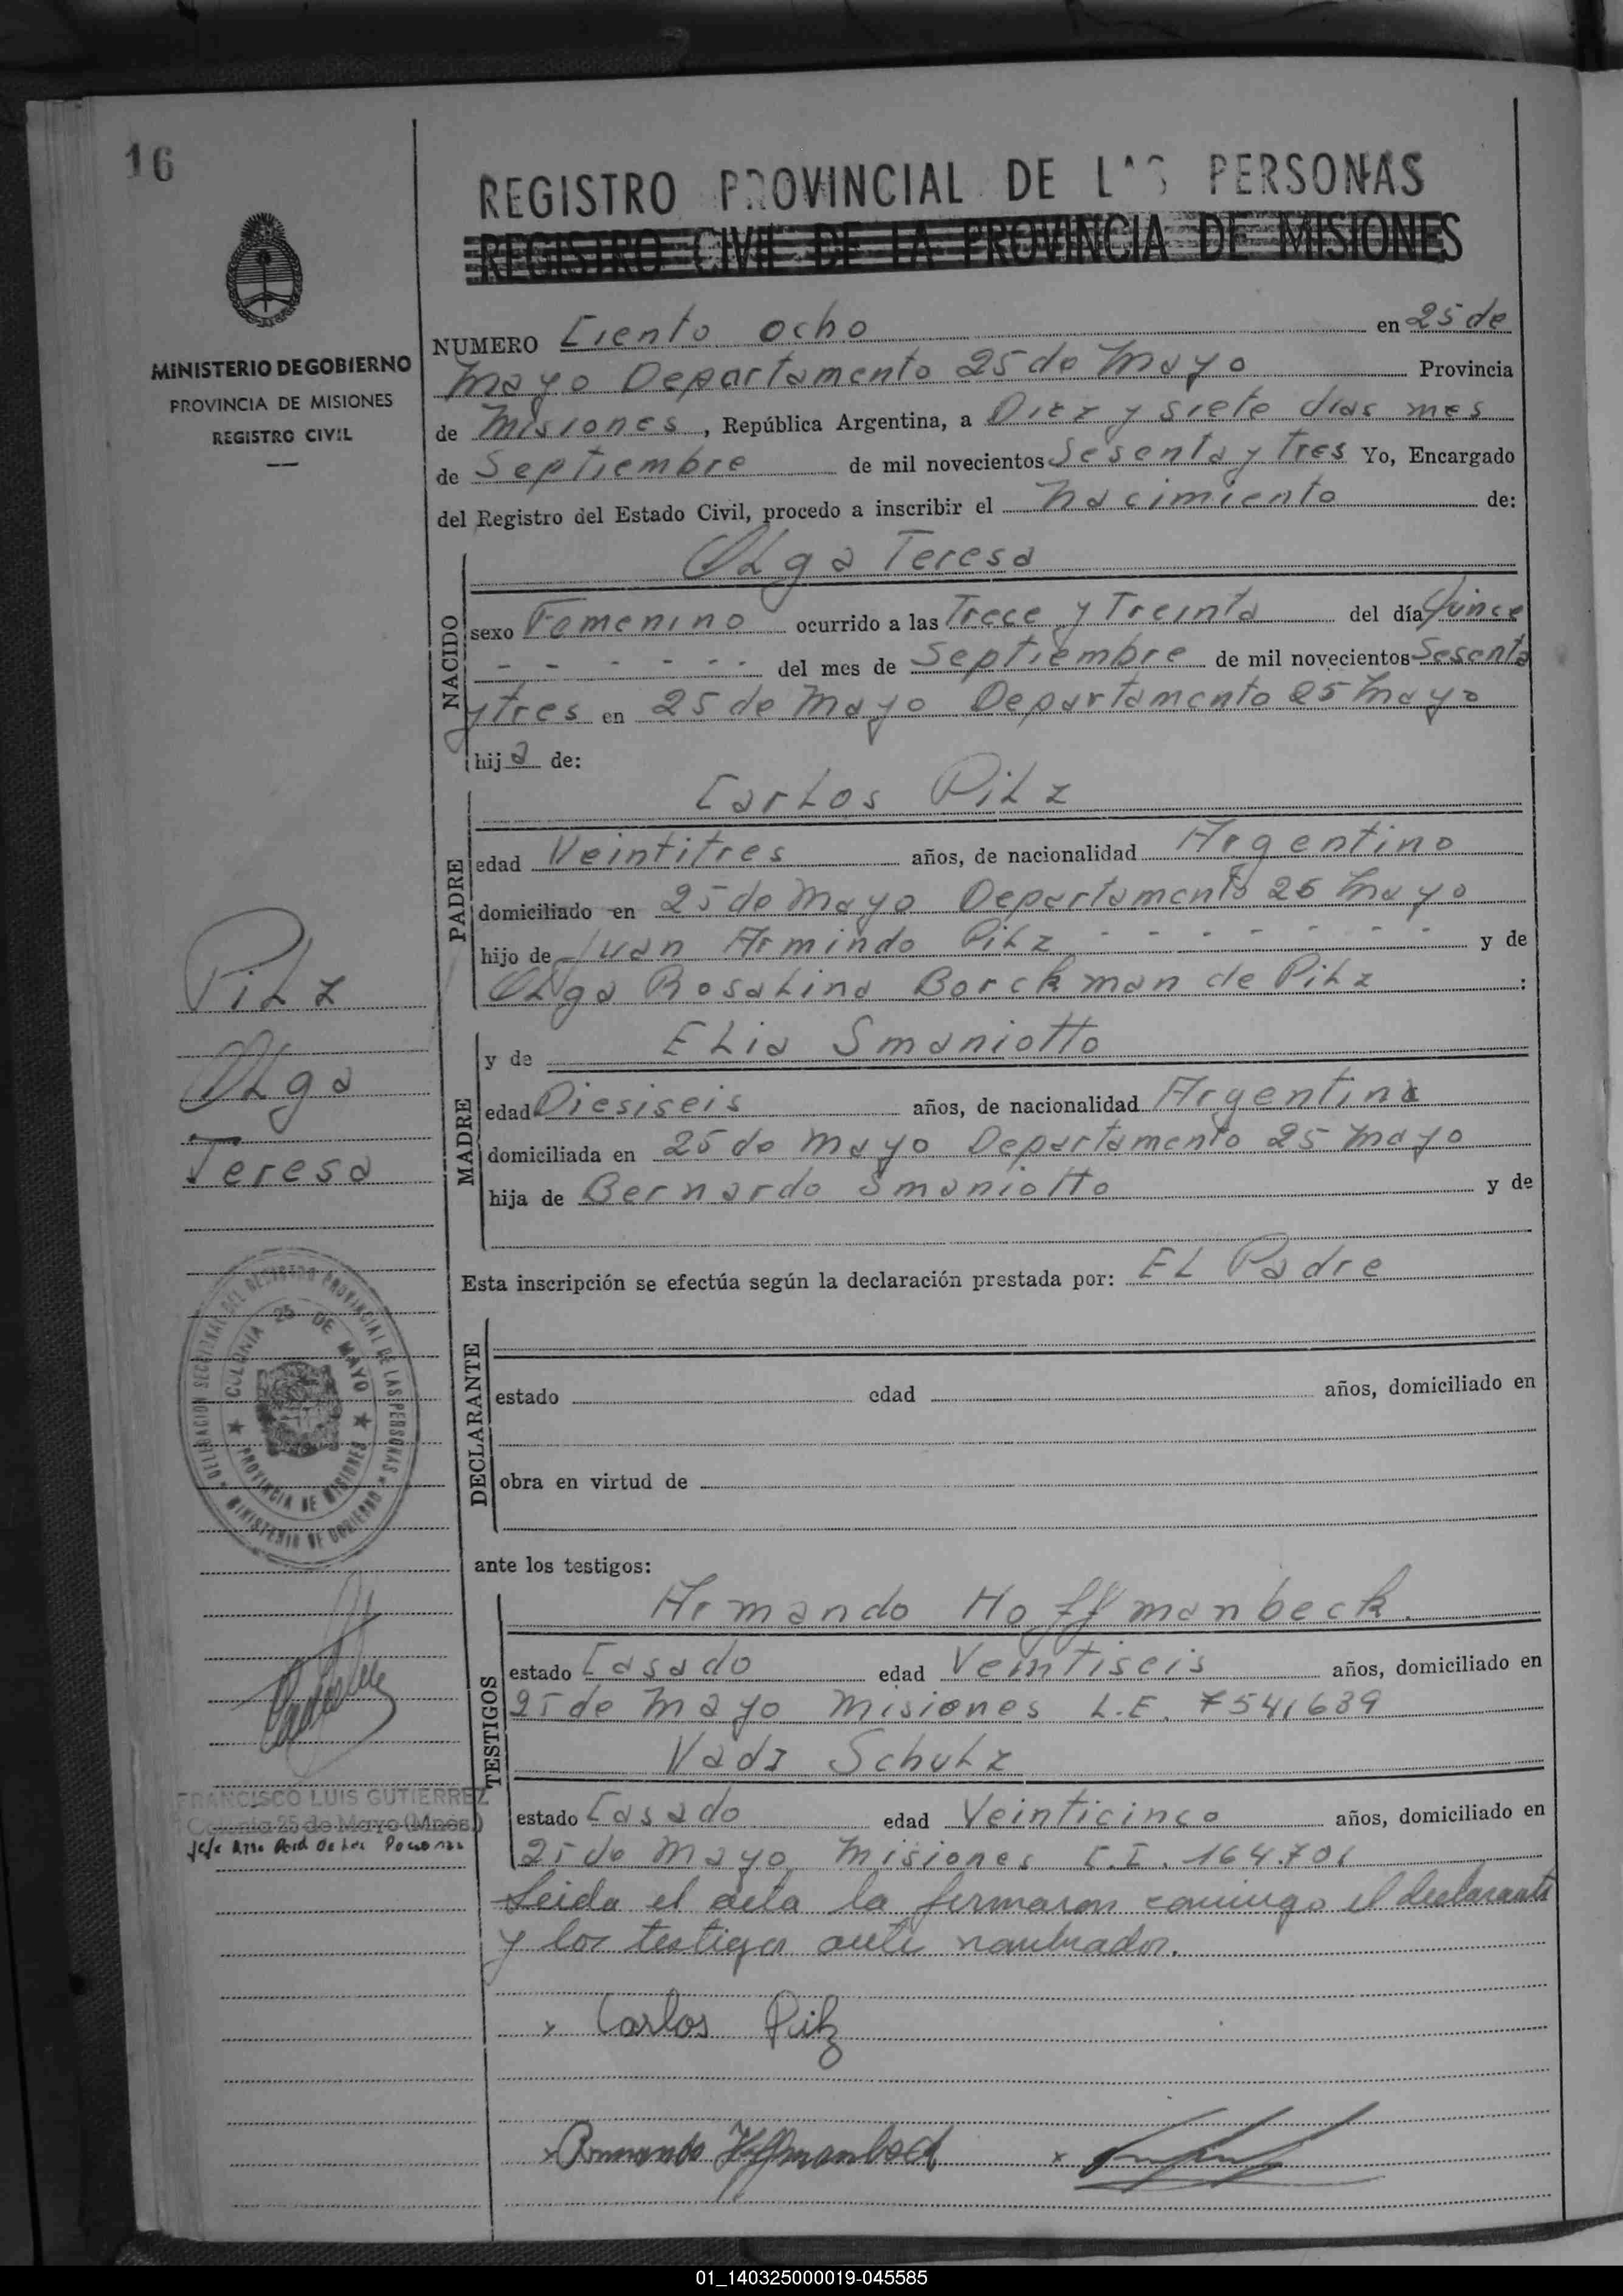 16
REGISTRO PROVINCIAL DE LAS PERSONAS
REGISTRO CIVIL DE LA PROVINCIA DE MISIONES
MINISTERIO DE GOBIERNO
PROVINCIA DE MISIONES
REGISTRO CIVIL
NUMERO Ciento ocho en 25 de
Mayo Departamento 25 de Mayo Provincia
de Misiones, República Argentina, a Diez y siete dias mes
de Septiembre de mil novecientos Sesenta y tres Yo, Encargado
del Registro del Estado Civil, procedo a inscribir el Nacimiento de:
NACIDO
Olga Teresa
sexo Femenino ocurrido a las Trece y Treinta del día Quince
- - - - - - del mes de Septiembre de mil novecientos Sesenta
y tres en 25 de Mayo Departamento 25 Mayo
hija de:
PADRE
Carlos Pilz
edad Veintitres años, de nacionalidad Argentino
domiciliado en 25 de Mayo Departamento 25 Mayo
hijo de Juan Armindo Pilz - - - - - - - - y de
Olga Rosalina Borckman de Pilz :
MADRE
y de Elia Smaniotto
edad Diesiseis años, de nacionalidad Argentina
domiciliada en 25 de Mayo Departamento 25 Mayo
hija de Bernardo Smaniotto y de
Esta inscripción se efectúa según la declaración prestada por: El Padre
DECLARANTE
estado edad años, domiciliado en
obra en virtud de
ante los testigos:
TESTIGOS
Armando Hoffmanbeck.
estado Casado edad Veintiseis años, domiciliado en
25 de Mayo Misiones L.E. 7541689
Vadi Schulz
estado Casado edad Veinticinco años, domiciliado en
25 de Mayo Misiones C.I. 164.701
Leida el acta la firmaron conmigo el declarante
y los testigos ante nombrados.
x Carlos Pilz
x Armando Hoffmanbeck x
Pilz
Olga
Teresa
DELEGACION SECCIONAL DEL REGISTRO PROVINCIAL DE LAS PERSONAS
COLONIA 25 DE MAYO
PROVINCIA DE MISIONES
MINISTERIO DE GOBIERNO
FRANCISCO LUIS GUTIERREZ
Colonia 25 de Mayo (Mnes.)
01_140325000019-045585